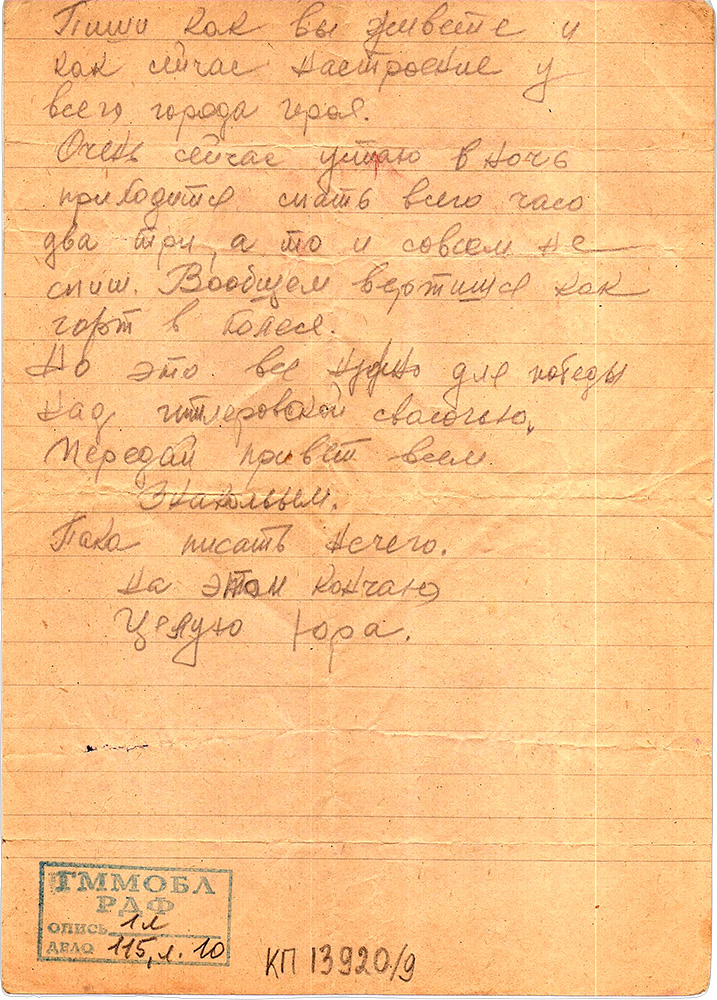 Пиши как вы живете и
как сейчас настроение у
всего города героя.
Очень сейчас устаю в ночь
приходится спать всего часо
два три, а то и совсем не
спиш. Вообщем вертишся как
в колесе.
Но это все нужно для победы
над гитлеровской сволочью.
Передай привет всем
знакомым.
Пока писать нечего.
На этом кончаю
Целую Юра.
ГММОБЛ
РДФ
ОПИСЬ 1л
ДЕЛО 115, л. 10
КП 13920/9